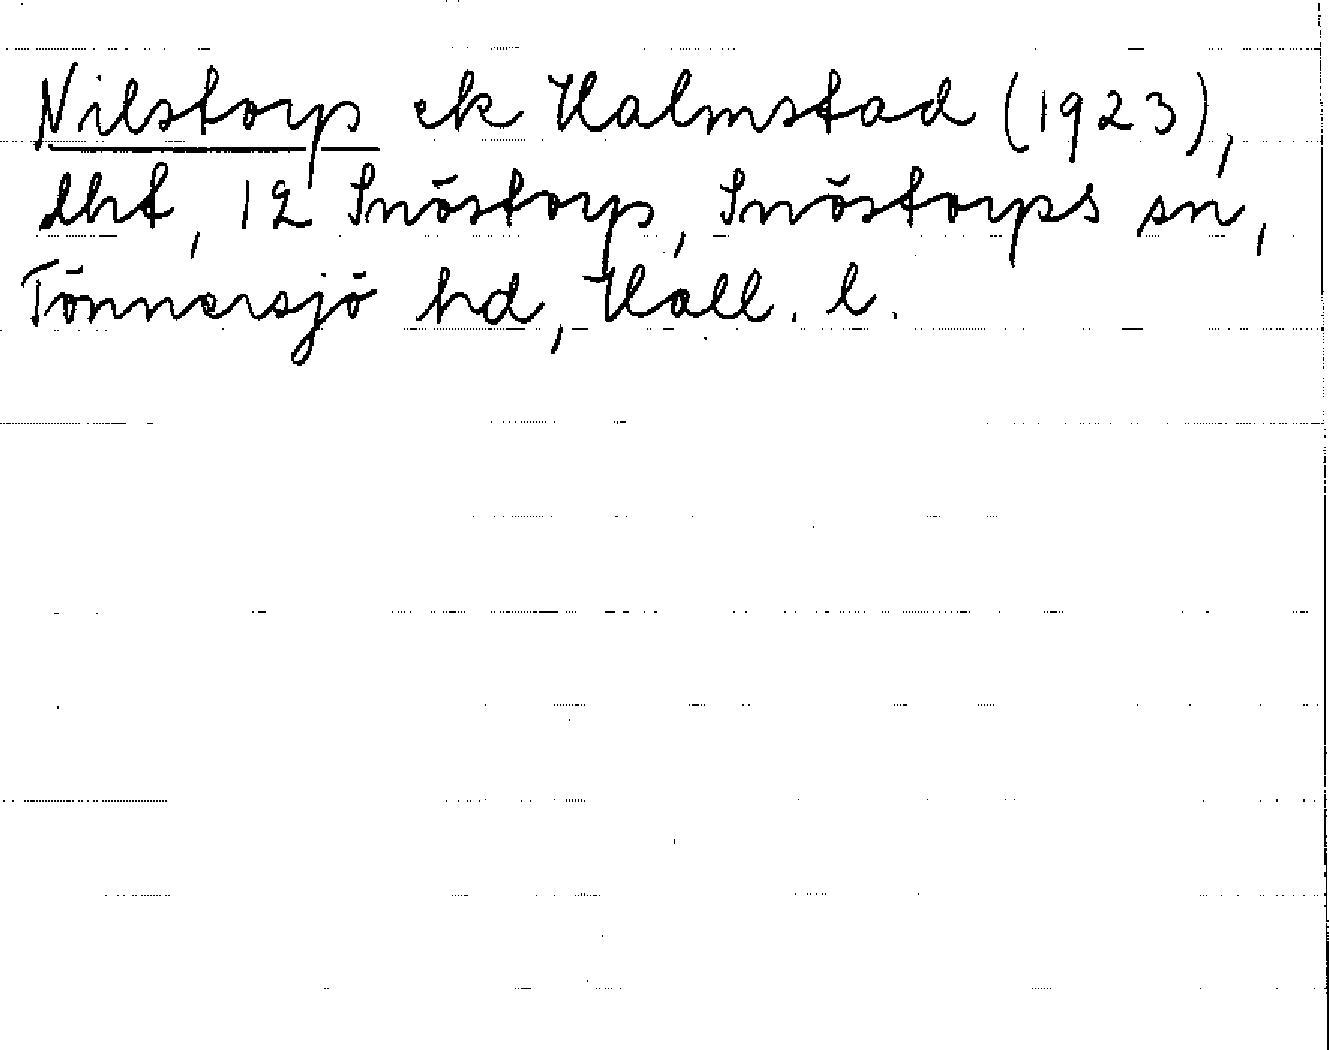 Nilstorp ek Halmstad (1923),
lht, 12 Snöstorp, Snöstorps sn,
Tönnersjö hd, Hall. l.